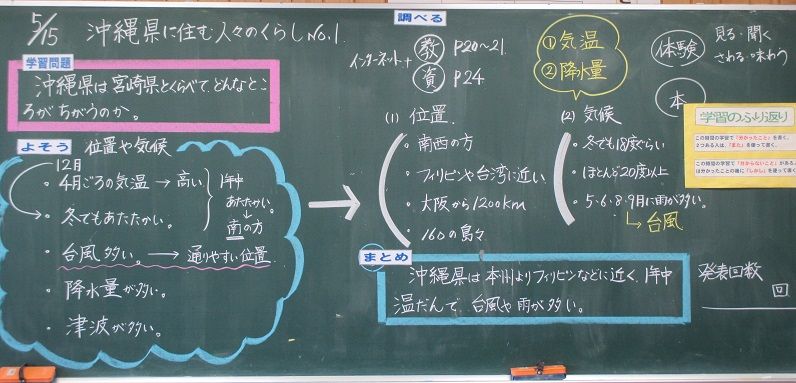 5/15 沖縄県に住む人々のくらし No.1.
学習問題
沖縄県は宮崎県とくらべて、どんなとこ
ろがちがうのか。
よそう 位置や気候
12月
・4月ごろの気温 → 高い
・冬でもあたたかい。
1年中
あたたかい。
↓
南の方
・台風多い。 → 通りやすい位置
・降水量が多い。
・津波が多い。
調べる
インターネット+
教 P20~21.
資 P24
①気温
②降水量
体験 見る・聞く
される・味わう
本
(1) 位置.
・南西の方
・フィリピンや台湾に近い
・大阪から1200km
・160の島々
(2) 気候
・冬でも18度ぐらい
・ほとんど20度以上
・5・6・8・9月に雨が多い。
台風
学習のふり返り
この時間の学習で「分かったこと」を書く。
2つある人は、「また」を使って書く。
この時間の学習で「分からないこと」がある
は分かったことの後に「しかし」を使って書
まとめ
沖縄県は本州よりフィリピンなどに近く、1年中
温だんで、台風や雨が多い。
発表回数
回